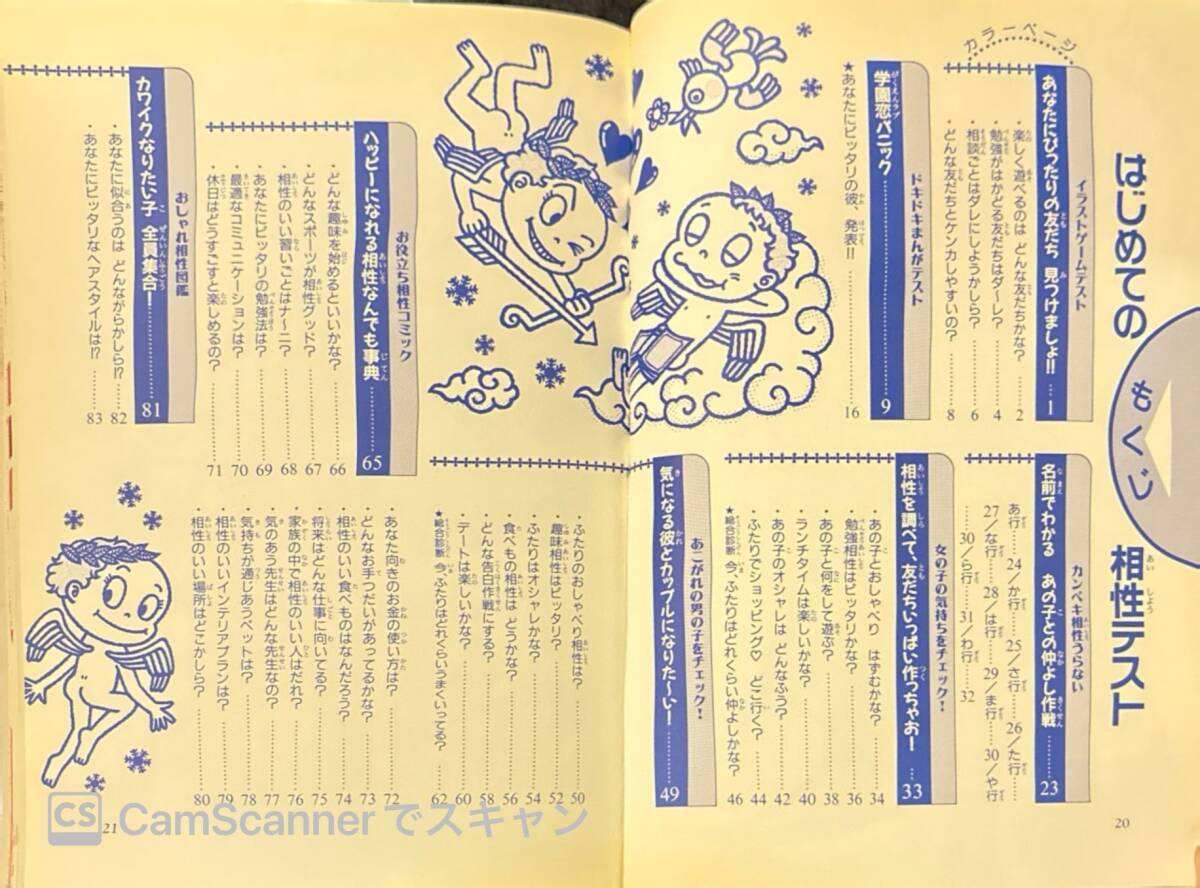 はじめての 相性テスト
もくじ
カラーページ
イラストゲームテスト
あなたにぴったりの友だち 見つけましょ!!………1
・楽しく遊べるのは どんな友だちかな?………2
・勉強がはかどる友だちはダ〜レ?………4
・相談ごとはダレにしようかしら?………6
・どんな友だちとケンカしやすいの?………8
ドキドキまんがテスト
学園恋パニック………9
★あなたにピッタリの彼、発表!!………16
カンペキ相性うらない
名前でわかる あの子との仲よし作戦………23
あ行………24/か行………25/さ行………26/た行
………27/な行………28/は行………29/ま行………30/や行
………30/ら行………31/わ行………32
女の子の気持ちをチェック!
相性を調べて、友だちいっぱい作っちゃお!………33
・あの子とおしゃべり はずむかな?………34
・勉強相性はピッタリかな?………36
・あの子と何をして遊ぶ?………38
・ランチタイムは楽しいかな?………40
・あの子のオシャレは どんなふう?………42
・ふたりでショッピング♡ どこ行く?………44
★総合診断 今、ふたりはどれくらい仲よしかな?………46
あこがれの男の子をチェック!
気になる彼とカップルになりた〜い!………49
・ふたりのおしゃべり相性は?………50
・趣味相性はピッタリかな?………52
・ふたりはオシャレかな?………54
・食べもの相性は どうかな?………56
・どんな告白作戦にする?………58
・デートは楽しいかな?………60
★総合診断 今、ふたりはどれくらいうまくいってる?………62
お役立ち相性コミック
ハッピーになれる相性なんでも事典………65
・どんな趣味を始めるといいかな?………66
・どんなスポーツが相性グッド?………67
・相性のいい習いごとはナ〜ニ?………68
・あなたにピッタリの勉強法は?………69
・最適なコミュニケーションは?………70
・休日はどうすごすと楽しめるの?………71
・あなた向きのお金の使い方は?………72
・どんなお手つだいがあってるかな?………73
・相性のいい食べものはなんだろう?………74
・将来はどんな仕事に向いてる?………75
・家族の中で相性のいい人はだれ?………76
・気のあう先生はどんな先生なの?………77
・気持ちが通じあうペットは?………78
・相性のいいインテリアプランは?………79
・相性のいい場所はどこかしら?………80
おしゃれ相性図鑑
カワイクなりたい子 全員集合!………81
・あなたに似合うのは どんながらかしら!?………82
・あなたにピッタリなヘアスタイルは!?………83
20
21
CS CamScannerでスキャン